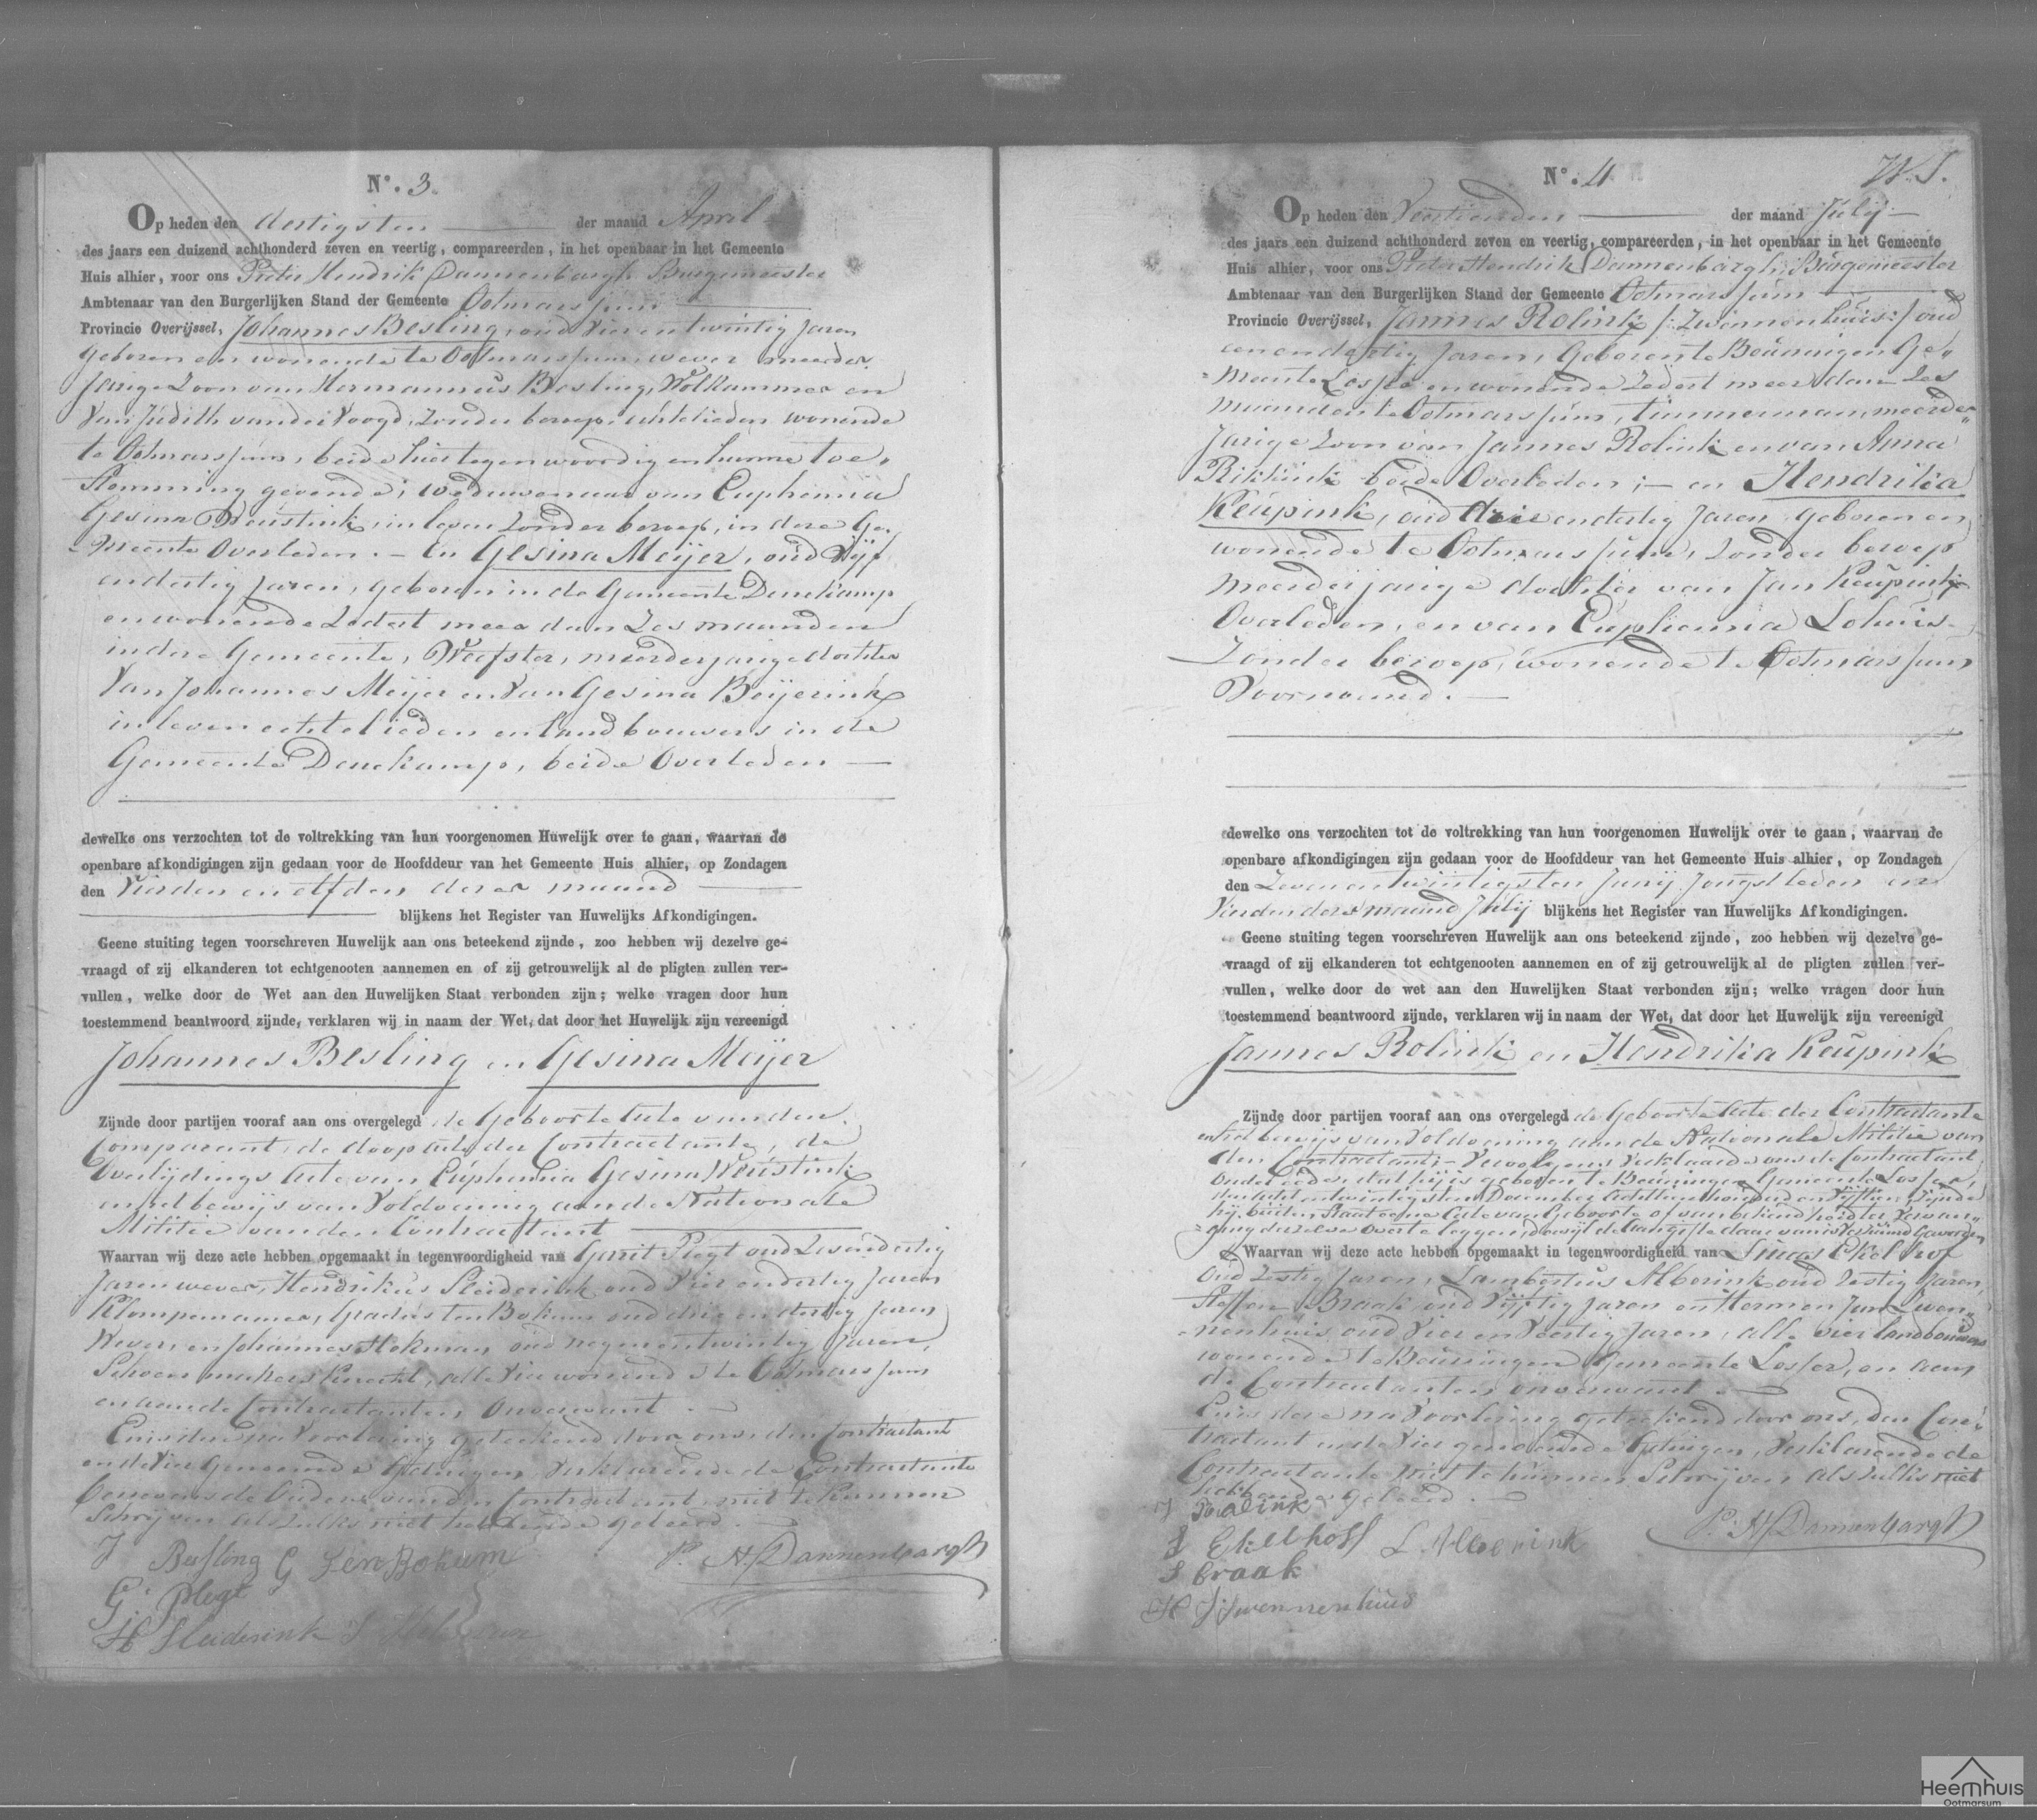 N°. 3
Op heden den dertigsten der maand April
des jaars een duizend achthonderd zeven en veertig, compareerden, in het openbaar in het Gemeente
Huis alhier, voor ons Pieter Hendrik Dannenbargh Burgemeester
Ambtenaar van den Burgerlijken Stand der Gemeente Ootmarssum
Provincie Overijssel, Johannes Besling, oud vier en twintig jaren
geboren en wonende te Ootmarssum, wever meerder
jarige Zoon van Hermannus Besling, Wolkammer en
van Judith van der Voogd, zonder beroep, echtelieden wonende
te Ootmarssum, beide hier tegenwoordig en hunne toe,
stemming gevende; weduwenaar van Euphemia
Gesina Reustink, in leven zonder beroep, in deze Ge,
meente Overleden. — En Gesina Meijer, oud Vijf
en dertig jaren, geboren in de Gemeente Denekamp
en wonende zedert meer dan Zes maanden
in deze Gemeente, Weefster, meerderjarige dochter
Van Johannes Meijer en Van Gesina Beijerink
in leven echtelieden en landbouwers in de
Gemeente Denekamp, beide Overleden —
dewelke ons verzochten tot de voltrekking van hun voorgenomen Huwelijk over te gaan, waarvan de
openbare afkondigingen zijn gedaan voor de Hoofddeur van het Gemeente Huis alhier, op Zondagen
den Vierden en elfden dezer maand
blijkens het Register van Huwelijks Afkondigingen.
Geene stuiting tegen voorschreven Huwelijk aan ons beteekend zijnde, zoo hebben wij dezelve ge-
vraagd of zij elkanderen tot echtgenooten aannemen en of zij getrouwelijk al de pligten zullen ver-
vullen, welke door de Wet aan den Huwelijken Staat verbonden zijn; welke vragen door hun
toestemmend beantwoord zijnde, verklaren wij in naam der Wet, dat door het Huwelijk zijn vereenigd
Johannes Besling en Gesina Meijer
Zijnde door partijen vooraf aan ons overgelegd de Geboorte Acte van den
Comparant, de doop acte der Contractante, de
Overlijdings Acte van Euphemia Gesina Reustink
en het bewijs van Voldoening aan de Nationale
Militie van den Contractant
Waarvan wij deze acte hebben opgemaakt in tegenwoordigheid van Gerrit Plegt oud Zes en dertig
Jaren wever, Hendrikus Sleiderink oud Vier en dertig Jaren
Klompemaker, Gradus ten Bokum oud drie en dertig Jaren
Wever, en Johannes Hokman oud negen en twintig Jaren,
Schoenmakers Knecht, alle Vier wonende te Ootmarssum
en aan de Contractanten Onverwant. —
En is deze na Voorlezing geteekend door ons, den Contractant
en de Vier Genoemde Getuigen, verklarende de Contractante
benevens de Ouders van den Contractant niet te kunnen
Schrijven als zulks niet hebbende geleerd. —
J Besling G ten Bokum P. H. Dannenbargh
G. Plegt
H Sleiderink J Hokman
N°. 4
W. J.
Op heden den Veertienden der maand Julij
des jaars een duizend achthonderd zeven en veertig, compareerden, in het openbaar in het Gemeente
Huis alhier, voor ons Pieter Hendrik Dannenbargh, Burgemeester
Ambtenaar van den Burgerlijken Stand der Gemeente Ootmarssum
Provincie Overijssel, Jannes Rolink /: Zwennenhuis :/ oud
een en dertig Jaren, Geboren te Beuningen Ge,
meente Losser en wonende Zedert meer dan Zes
maanden te Ootmarssum, timmerman, meerder
Jarige Zoon van Jannes Rolink en van Anna
Rikhink beide Overleden; — en Hendrikia
Keupink, oud drie en dertig Jaren geboren en
wonende te Ootmarssum, zonder beroep
meerderjarige dochter van Jan Keupink
Overleden, en van Euphemia Lohuis
Zonder beroep, wonende te Ootmarssum
Voornoemd. —
dewelke ons verzochten tot de voltrekking van hun voorgenomen Huwelijk over te gaan, waarvan de
openbare afkondigingen zijn gedaan voor de Hoofddeur van het Gemeente Huis alhier, op Zondagen
den Zeven en twintigsten Junij Jongstleden en
Vierden dezer maand Julij blijkens het Register van Huwelijks Afkondigingen.
Geene stuiting tegen voorschreven Huwelijk aan ons beteekend zijnde, zoo hebben wij dezelve ge-
vraagd of zij elkanderen tot echtgenooten aannemen en of zij getrouwelijk al de pligten zullen ver-
vullen, welke door de wet aan den Huwelijken Staat verbonden zijn; welke vragen door hun
toestemmend beantwoord zijnde, verklaren wij in naam der Wet, dat door het Huwelijk zijn vereenigd
Jannes Rolink en Hendrikia Keupink
Zijnde door partijen vooraf aan ons overgelegd de Geboorte Acte der Contractante
en het bewijs van Voldoening aan de Nationale Militie van
den Contractant; verklaarde ons de Contractant
onder eede, dat hij is geboren te Beuningen Gemeente Losser,
den acht en twintigsten December Achttien honderd en Vijftien, Zijnde
hij buiten staat eene Acte van Geboorte of van bekendheid ter vervan,
ging derzelve overte leggen, dewijl de aangifte daar van is verzuimd geworden
Waarvan wij deze acte hebben opgemaakt in tegenwoordigheid van Ekelhof
oud Zestig Jaren, Lambertus Alberink oud Zestig Jaren,
Steffen Braak, oud Vijftig Jaren en Hermen Jan Zwen,
nenhuis oud Vier en Veertig Jaren, alle vier landbouwers
wonende te Beuningen Gemeente Losser, en aan
de Contractanten onverwant. —
En is deze na Voorlezing geteekend door ons, den Con,
tractant en de Vier genoemde Getuigen, Verklarende de
Contractante niet te kunnen Schrijven als zulks niet
hebbende geleerd. —
J Roalink
Ekelhoff L Alberink P. H. Dannenbargh
S braak
H J Swennenhuis
Heemhuis
Ootmarsum